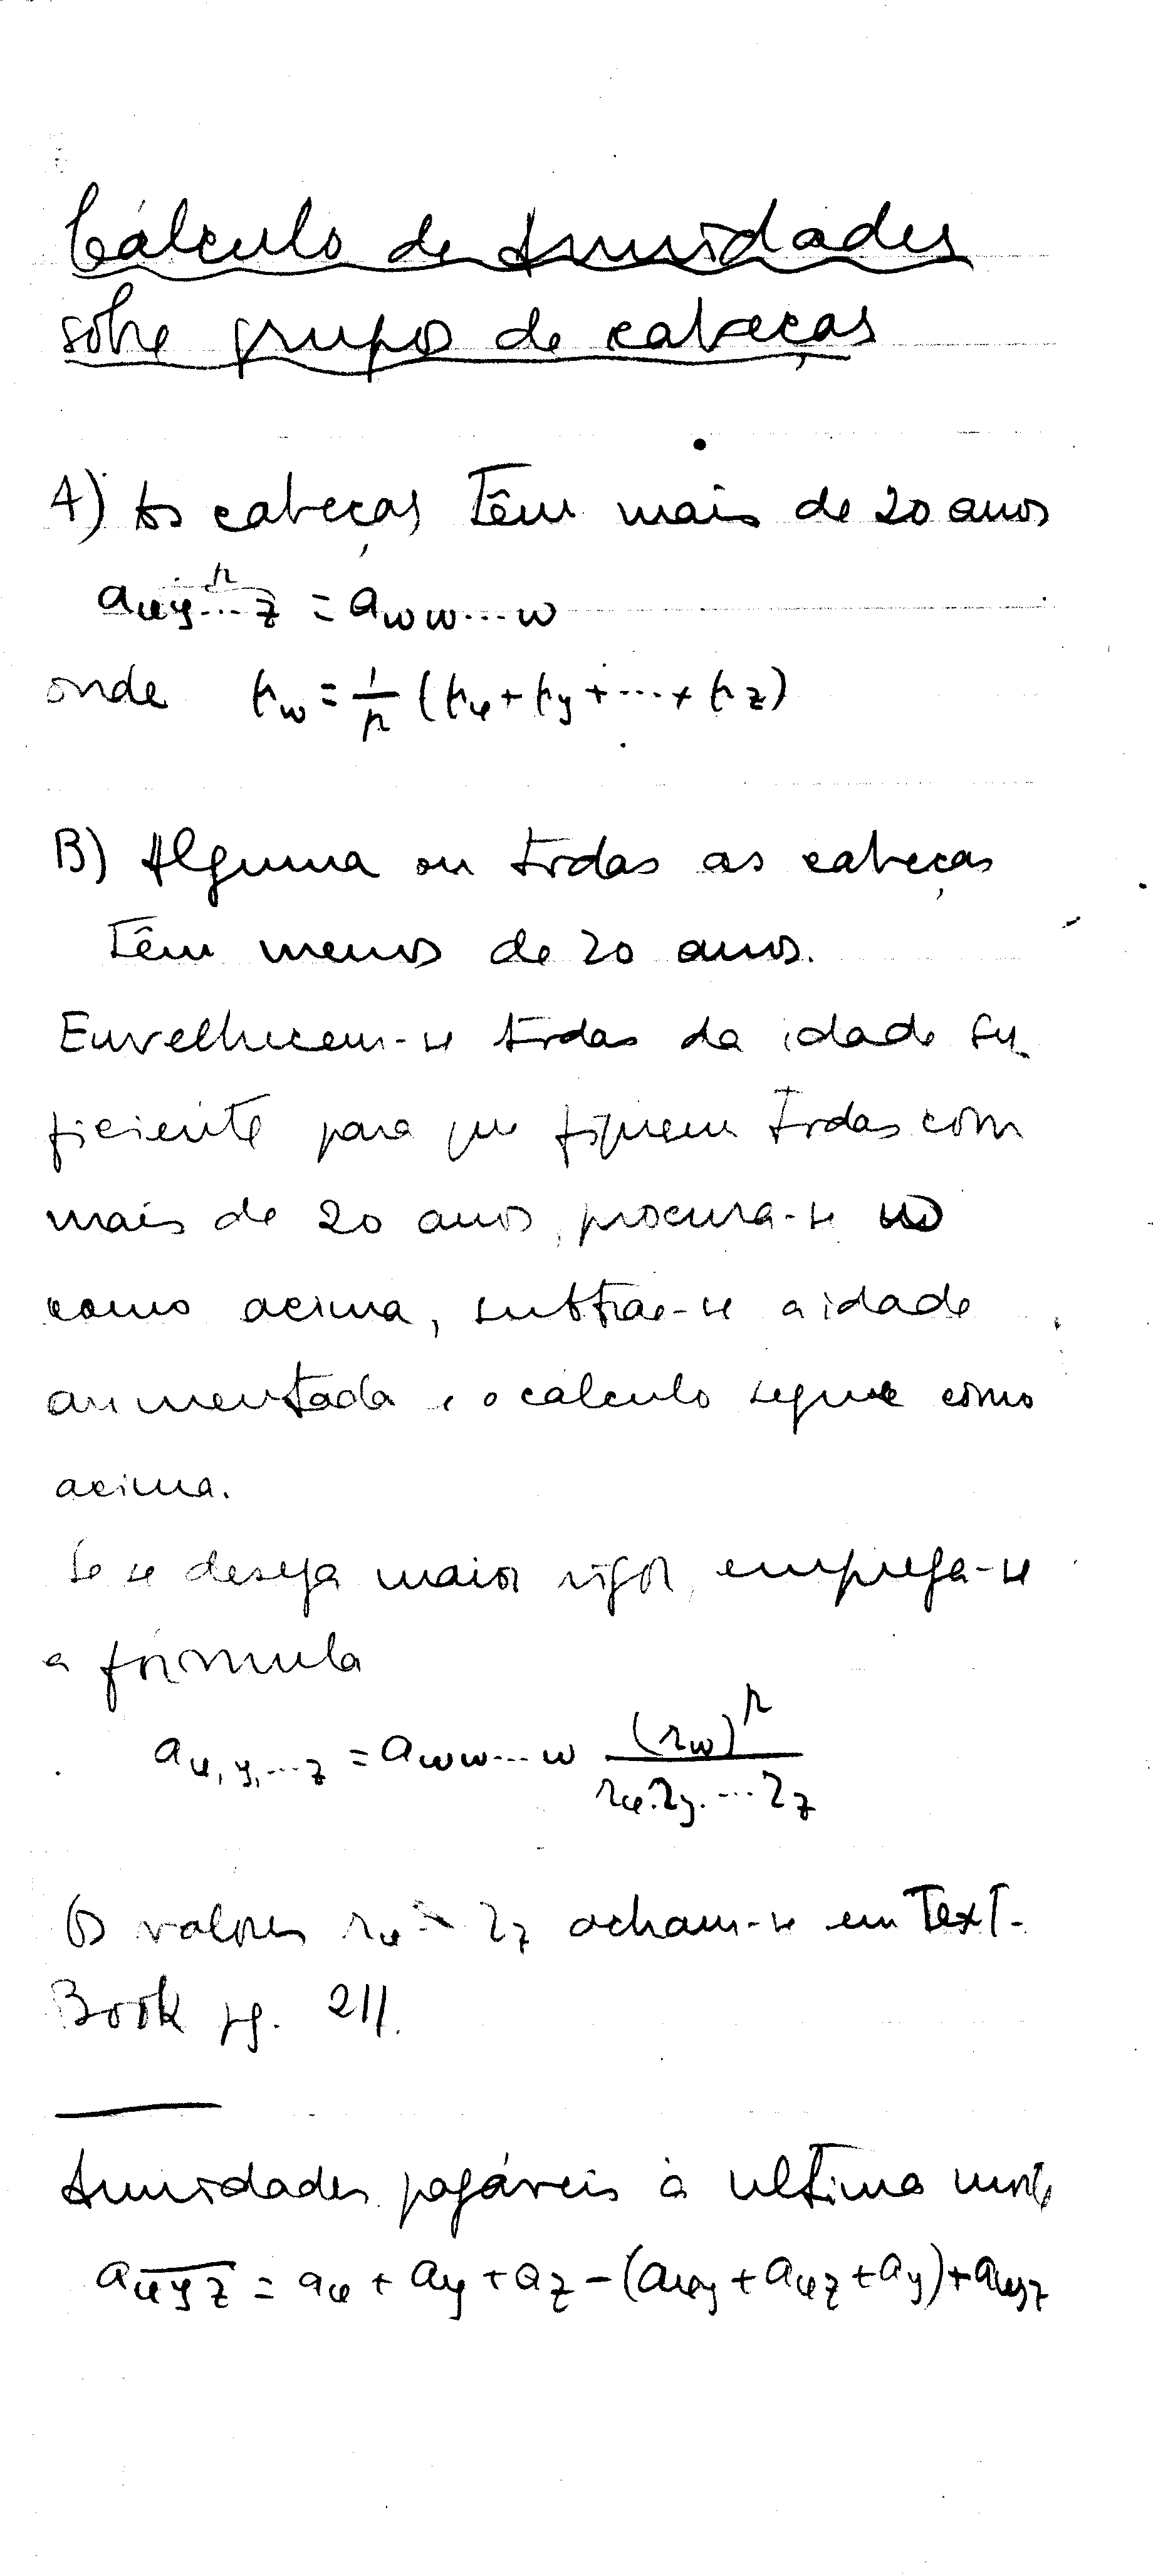 Cálculo de Anuidades
sôbre grupos de cabeças
A) As cabeças têm mais de 20 anos
a xy...z = a ww...w
onde μw = 1/n (μx + μy + ... + μz)
B) Alguma ou todas as cabeças
têm menos de 20 anos.
Envelhecem-se todas da idade su-
ficiente para que fiquem todas com
mais de 20 anos, procura-se w
como acima, subtrae-se a idade
aumentada e o cálculo segue como
acima.
Se se deseja maior rigor, emprega-se
a fórmula
a x,y,...z = a ww...w (rw)^n / rx.ry. ... rz
Os valores rx a rz acham-se em Text-
Book pg. 211.
Anuidades pagáveis à última morte
a xyz = ax + ay + az - (axy + axz + ay) + axyz